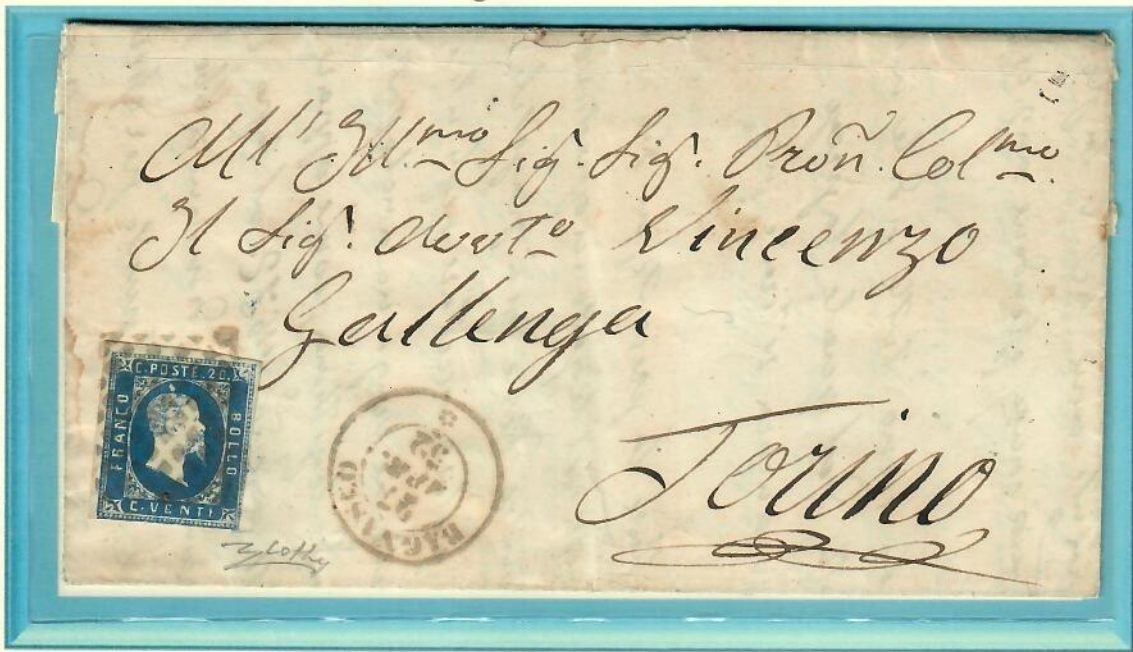 All' Ill.mo Sig. Sig. Proñ. Col.mo
Il Sig. Avv.to Vincenzo
Gallenga
Torino
C. POSTE. 20.
FRANCO
BOLLO
C. VENTI
BAGNASCO
21
APR.
52